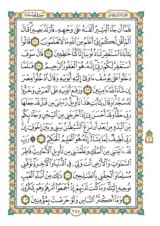 فَلَمَّا أَن جَاءَ الْبَشِيرُ أَلْقَاهُ عَلَى وَجْهِهِ فَارْتَدَّ بَصِيرًا قَالَ
أَلَمْ أَقُل لَّكُمْ إِنِّي أَعْلَمُ مِنَ اللَّهِ مَا لَا تَعْلَمُونَ قَالُوا
يَا أَبَانَا اسْتَغْفِرْ لَنَا ذُنُوبَنَا إِنَّا كُنَّا خَاطِئِينَ قَالَ سَوْفَ
أَسْتَغْفِرُ لَكُمْ رَبِّي إِنَّهُ هُوَ الْغَفُورُ الرَّحِيمُ فَلَمَّا
دَخَلُوا عَلَى يُوسُفَ آوَى إِلَيْهِ أَبَوَيْهِ وَقَالَ ادْخُلُوا مِصْرَ
إِن شَاءَ اللَّهُ آمِنِينَ وَرَفَعَ أَبَوَيْهِ عَلَى الْعَرْشِ وَخَرُّوا
لَهُ سُجَّدًا وَقَالَ يَا أَبَتِ هَذَا تَأْوِيلُ رُؤْيَايَ مِن قَبْلُ قَدْ جَعَلَهَا
رَبِّي حَقًّا وَقَدْ أَحْسَنَ بِي إِذْ أَخْرَجَنِي مِنَ السِّجْنِ وَجَاءَ بِكُم
مِّنَ الْبَدْوِ مِن بَعْدِ أَن نَّزَغَ الشَّيْطَانُ بَيْنِي وَبَيْنَ إِخْوَتِي إِنَّ
رَبِّي لَطِيفٌ لِّمَا يَشَاءُ إِنَّهُ هُوَ الْعَلِيمُ الْحَكِيمُ رَبِّ
قَدْ آتَيْتَنِي مِنَ الْمُلْكِ وَعَلَّمْتَنِي مِن تَأْوِيلِ الْأَحَادِيثِ فَاطِرَ
السَّمَاوَاتِ وَالْأَرْضِ أَنتَ وَلِيِّي فِي الدُّنْيَا وَالْآخِرَةِ تَوَفَّنِي
مُسْلِمًا وَأَلْحِقْنِي بِالصَّالِحِينَ ذَلِكَ مِنْ أَنبَاءِ الْغَيْبِ
نُوحِيهِ إِلَيْكَ وَمَا كُنتَ لَدَيْهِمْ إِذْ أَجْمَعُوا أَمْرَهُمْ وَهُمْ يَمْكُرُونَ
وَمَا أَكْثَرُ النَّاسِ وَلَوْ حَرَصْتَ بِمُؤْمِنِينَ